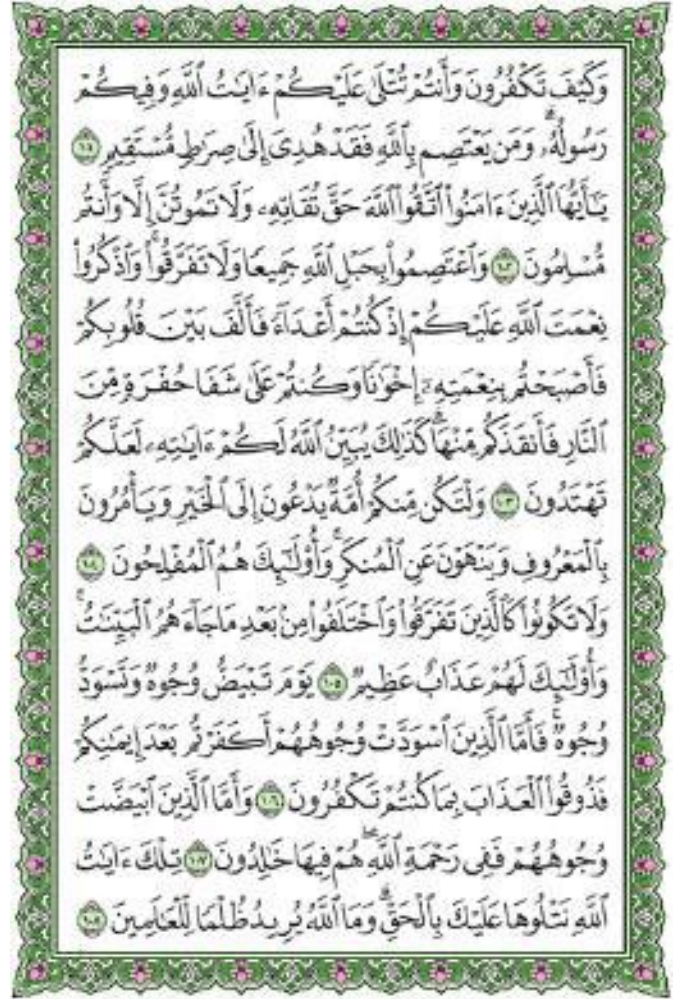 وَكَيْفَ تَكْفُرُونَ وَأَنتُمْ تُتْلَىٰ عَلَيْكُمْ ءَايَٰتُ ٱللَّهِ وَفِيكُمْ
رَسُولُهُۥ ۗ وَمَن يَعْتَصِم بِٱللَّهِ فَقَدْ هُدِىَ إِلَىٰ صِرَٰطٍ مُّسْتَقِيمٍ ١٠١
يَٰٓأَيُّهَا ٱلَّذِينَ ءَامَنُوا۟ ٱتَّقُوا۟ ٱللَّهَ حَقَّ تُقَاتِهِۦ وَلَا تَمُوتُنَّ إِلَّا وَأَنتُم
مُّسْلِمُونَ ١٠٢ وَٱعْتَصِمُوا۟ بِحَبْلِ ٱللَّهِ جَمِيعًا وَلَا تَفَرَّقُوا۟ ۚ وَٱذْكُرُوا۟
نِعْمَتَ ٱللَّهِ عَلَيْكُمْ إِذْ كُنتُمْ أَعْدَآءً فَأَلَّفَ بَيْنَ قُلُوبِكُمْ
فَأَصْبَحْتُم بِنِعْمَتِهِۦٓ إِخْوَٰنًا وَكُنتُمْ عَلَىٰ شَفَا حُفْرَةٍ مِّنَ
ٱلنَّارِ فَأَنقَذَكُم مِّنْهَا ۗ كَذَٰلِكَ يُبَيِّنُ ٱللَّهُ لَكُمْ ءَايَٰتِهِۦ لَعَلَّكُمْ
تَهْتَدُونَ ١٠٣ وَلْتَكُن مِّنكُمْ أُمَّةٌ يَدْعُونَ إِلَى ٱلْخَيْرِ وَيَأْمُرُونَ
بِٱلْمَعْرُوفِ وَيَنْهَوْنَ عَنِ ٱلْمُنكَرِ ۚ وَأُو۟لَٰٓئِكَ هُمُ ٱلْمُفْلِحُونَ ١٠٤
وَلَا تَكُونُوا۟ كَٱلَّذِينَ تَفَرَّقُوا۟ وَٱخْتَلَفُوا۟ مِنۢ بَعْدِ مَا جَآءَهُمُ ٱلْبَيِّنَٰتُ ۚ
وَأُو۟لَٰٓئِكَ لَهُمْ عَذَابٌ عَظِيمٌ ١٠٥ يَوْمَ تَبْيَضُّ وُجُوهٌ وَتَسْوَدُّ
وُجُوهٌ ۚ فَأَمَّا ٱلَّذِينَ ٱسْوَدَّتْ وُجُوهُهُمْ أَكَفَرْتُم بَعْدَ إِيمَٰنِكُمْ
فَذُوقُوا۟ ٱلْعَذَابَ بِمَا كُنتُمْ تَكْفُرُونَ ١٠٦ وَأَمَّا ٱلَّذِينَ ٱبْيَضَّتْ
وُجُوهُهُمْ فَفِى رَحْمَةِ ٱللَّهِ هُمْ فِيهَا خَٰلِدُونَ ١٠٧ تِلْكَ ءَايَٰتُ
ٱللَّهِ نَتْلُوهَا عَلَيْكَ بِٱلْحَقِّ ۗ وَمَا ٱللَّهُ يُرِيدُ ظُلْمًا لِّلْعَٰلَمِينَ ١٠٨